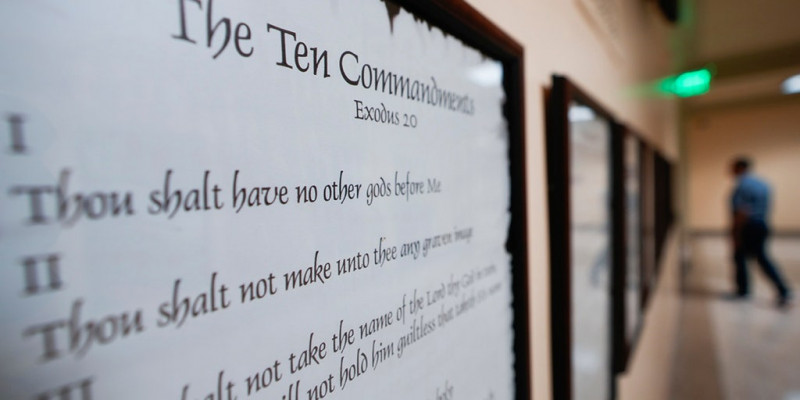 The Ten Commandments
Exodus 20
I
Thou shalt have no other gods before Me
II
Thou shalt not make unto thee any graven image
III
shalt not take the name of the Lord thy God in vain
will not hold him guiltless that taketh his name
holy